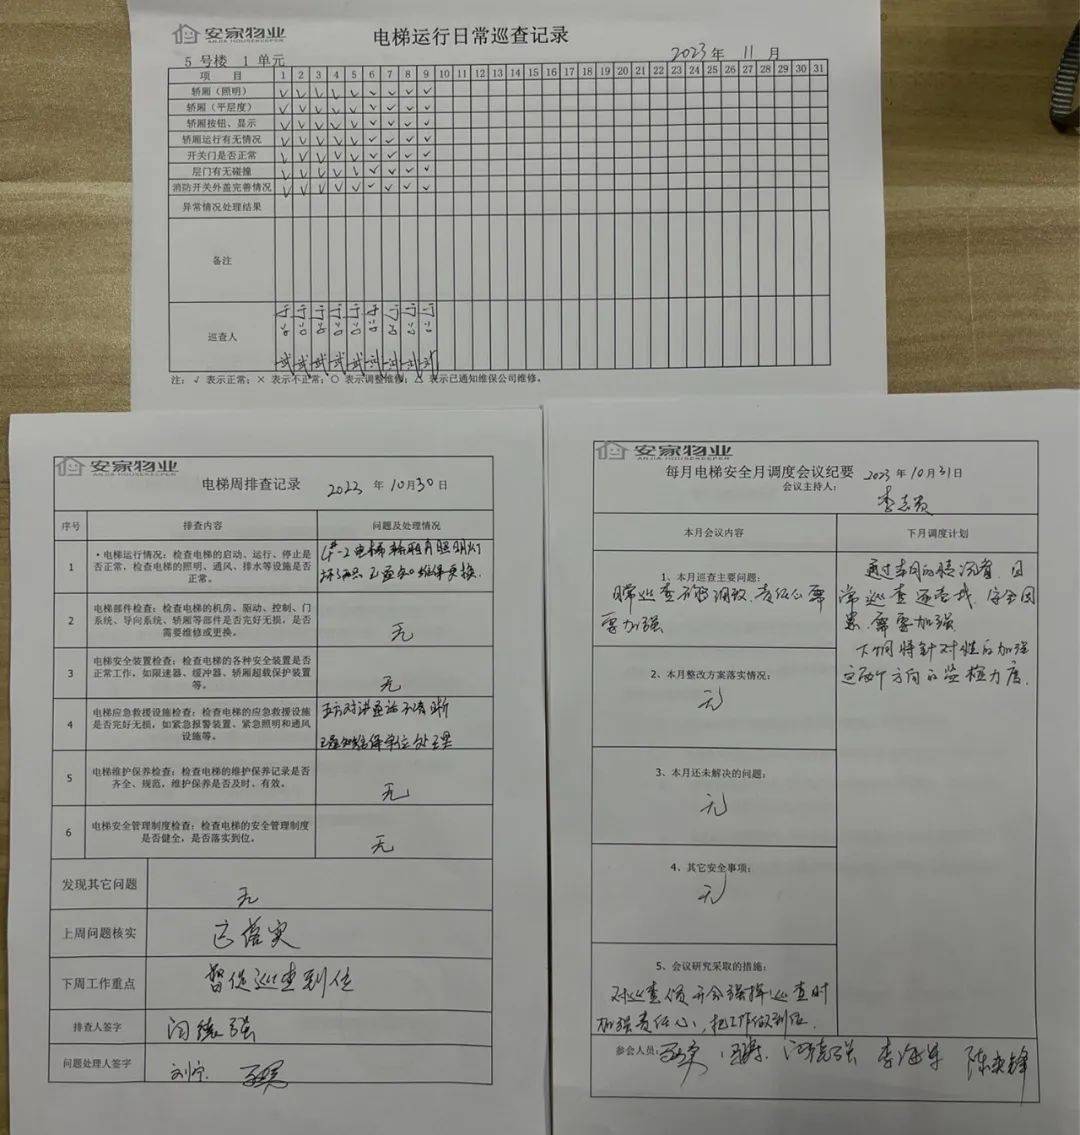 安家物业
ANJIA HOUSEKEEPER
电梯运行日常巡查记录
5 号楼 1 单元
2023 年 11 月
项 目 1 2 3 4 5 6 7 8 9 10 11 12 13 14 15 16 17 18 19 20 21 22 23 24 25 26 27 28 29 30 31
轿厢（照明） √ √ √ √ √ √ √ √ √
轿厢（平层度） √ √ √ √ √ √ √ √ √
轿厢按钮、显示 √ √ √ √ √ √ √ √ √
轿厢运行有无情况 √ √ √ √ √ √ √ √ √
开关门是否正常 √ √ √ √ √ √ √ √ √
层门有无碰撞 √ √ √ √ √ √ √ √ √
消防开关外盖完善情况 √ √ √ √ √ √ √ √ √
异常情况处理结果
备注
巡查人
注：√ 表示正常；× 表示不正常；○ 表示调整维修；△ 表示已通知维保公司维修。
安家物业
ANJIA HOUSEKEEPER
电梯周排查记录
2023 年 10月30日
序号 排查内容 问题及处理情况
1
·电梯运行情况：检查电梯的启动、运行、停止是
否正常，检查电梯的照明、通风、排水等设施是否
正常。
4#-2电梯轿厢月照明灯
坏了两只 已通知维保更换.
2
电梯部件检查：检查电梯的机房、驱动、控制、门
系统、导向系统、轿厢等部件是否完好无损，是否
需要维修或更换。
无
3
电梯安全装置检查：检查电梯的各种安全装置是否
正常工作，如限速器、缓冲器、轿厢超载保护装置
等。
无
4
电梯应急救援设施检查：检查电梯的应急救援设施
是否完好无损，如紧急报警装置、紧急照明和通风
设施等。
五方对讲通话不清晰
已通知维保单位处理
5
电梯维护保养检查：检查电梯的维护保养记录是否
齐全、规范，维护保养是否及时、有效。
无
6
电梯安全管理制度检查：检查电梯的安全管理制度
是否健全，是否落实到位。
无
发现其它问题 无
上周问题核实 已落实
下周工作重点 督促巡查到位
排查人签字 闫德强
问题处理人签字 刘宁
安家物业
ANJIA HOUSEKEEPER
每月电梯安全月调度会议纪要 2023 年10月31日
会议主持人：
李志员
本月会议内容 下月调度计划
1、本月巡查主要问题：
日常巡查 责任心需
要加强
2、本月整改方案落实情况：
无
3、本月还未解决的问题：
无
4、其它安全事项：
无
5、会议研究采取的措施：
对巡查人员开会强择巡查时
加强责任心，把工作做到位.
通过本月的情况看，日
常巡查还查找，安全因
患，需要加强
下个月将针对性的加强
这两个方向的监检力度.
参会人员： 闫德强 李海军 陈英锋